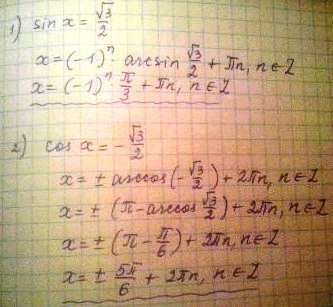 1) sin x = √3/2
x = (-1)ⁿ · arcsin √3/2 + πn, n ∈ Z
x = (-1)ⁿ π/3 + πn, n ∈ Z
2) cos x = - √3/2
x = ± arccos(- √3/2) + 2πn, n ∈ Z
x = ± (π - arccos √3/2) + 2πn, n ∈ Z
x = ± (π - π/6) + 2πn, n ∈ Z
x = ± 5π/6 + 2πn, n ∈ Z